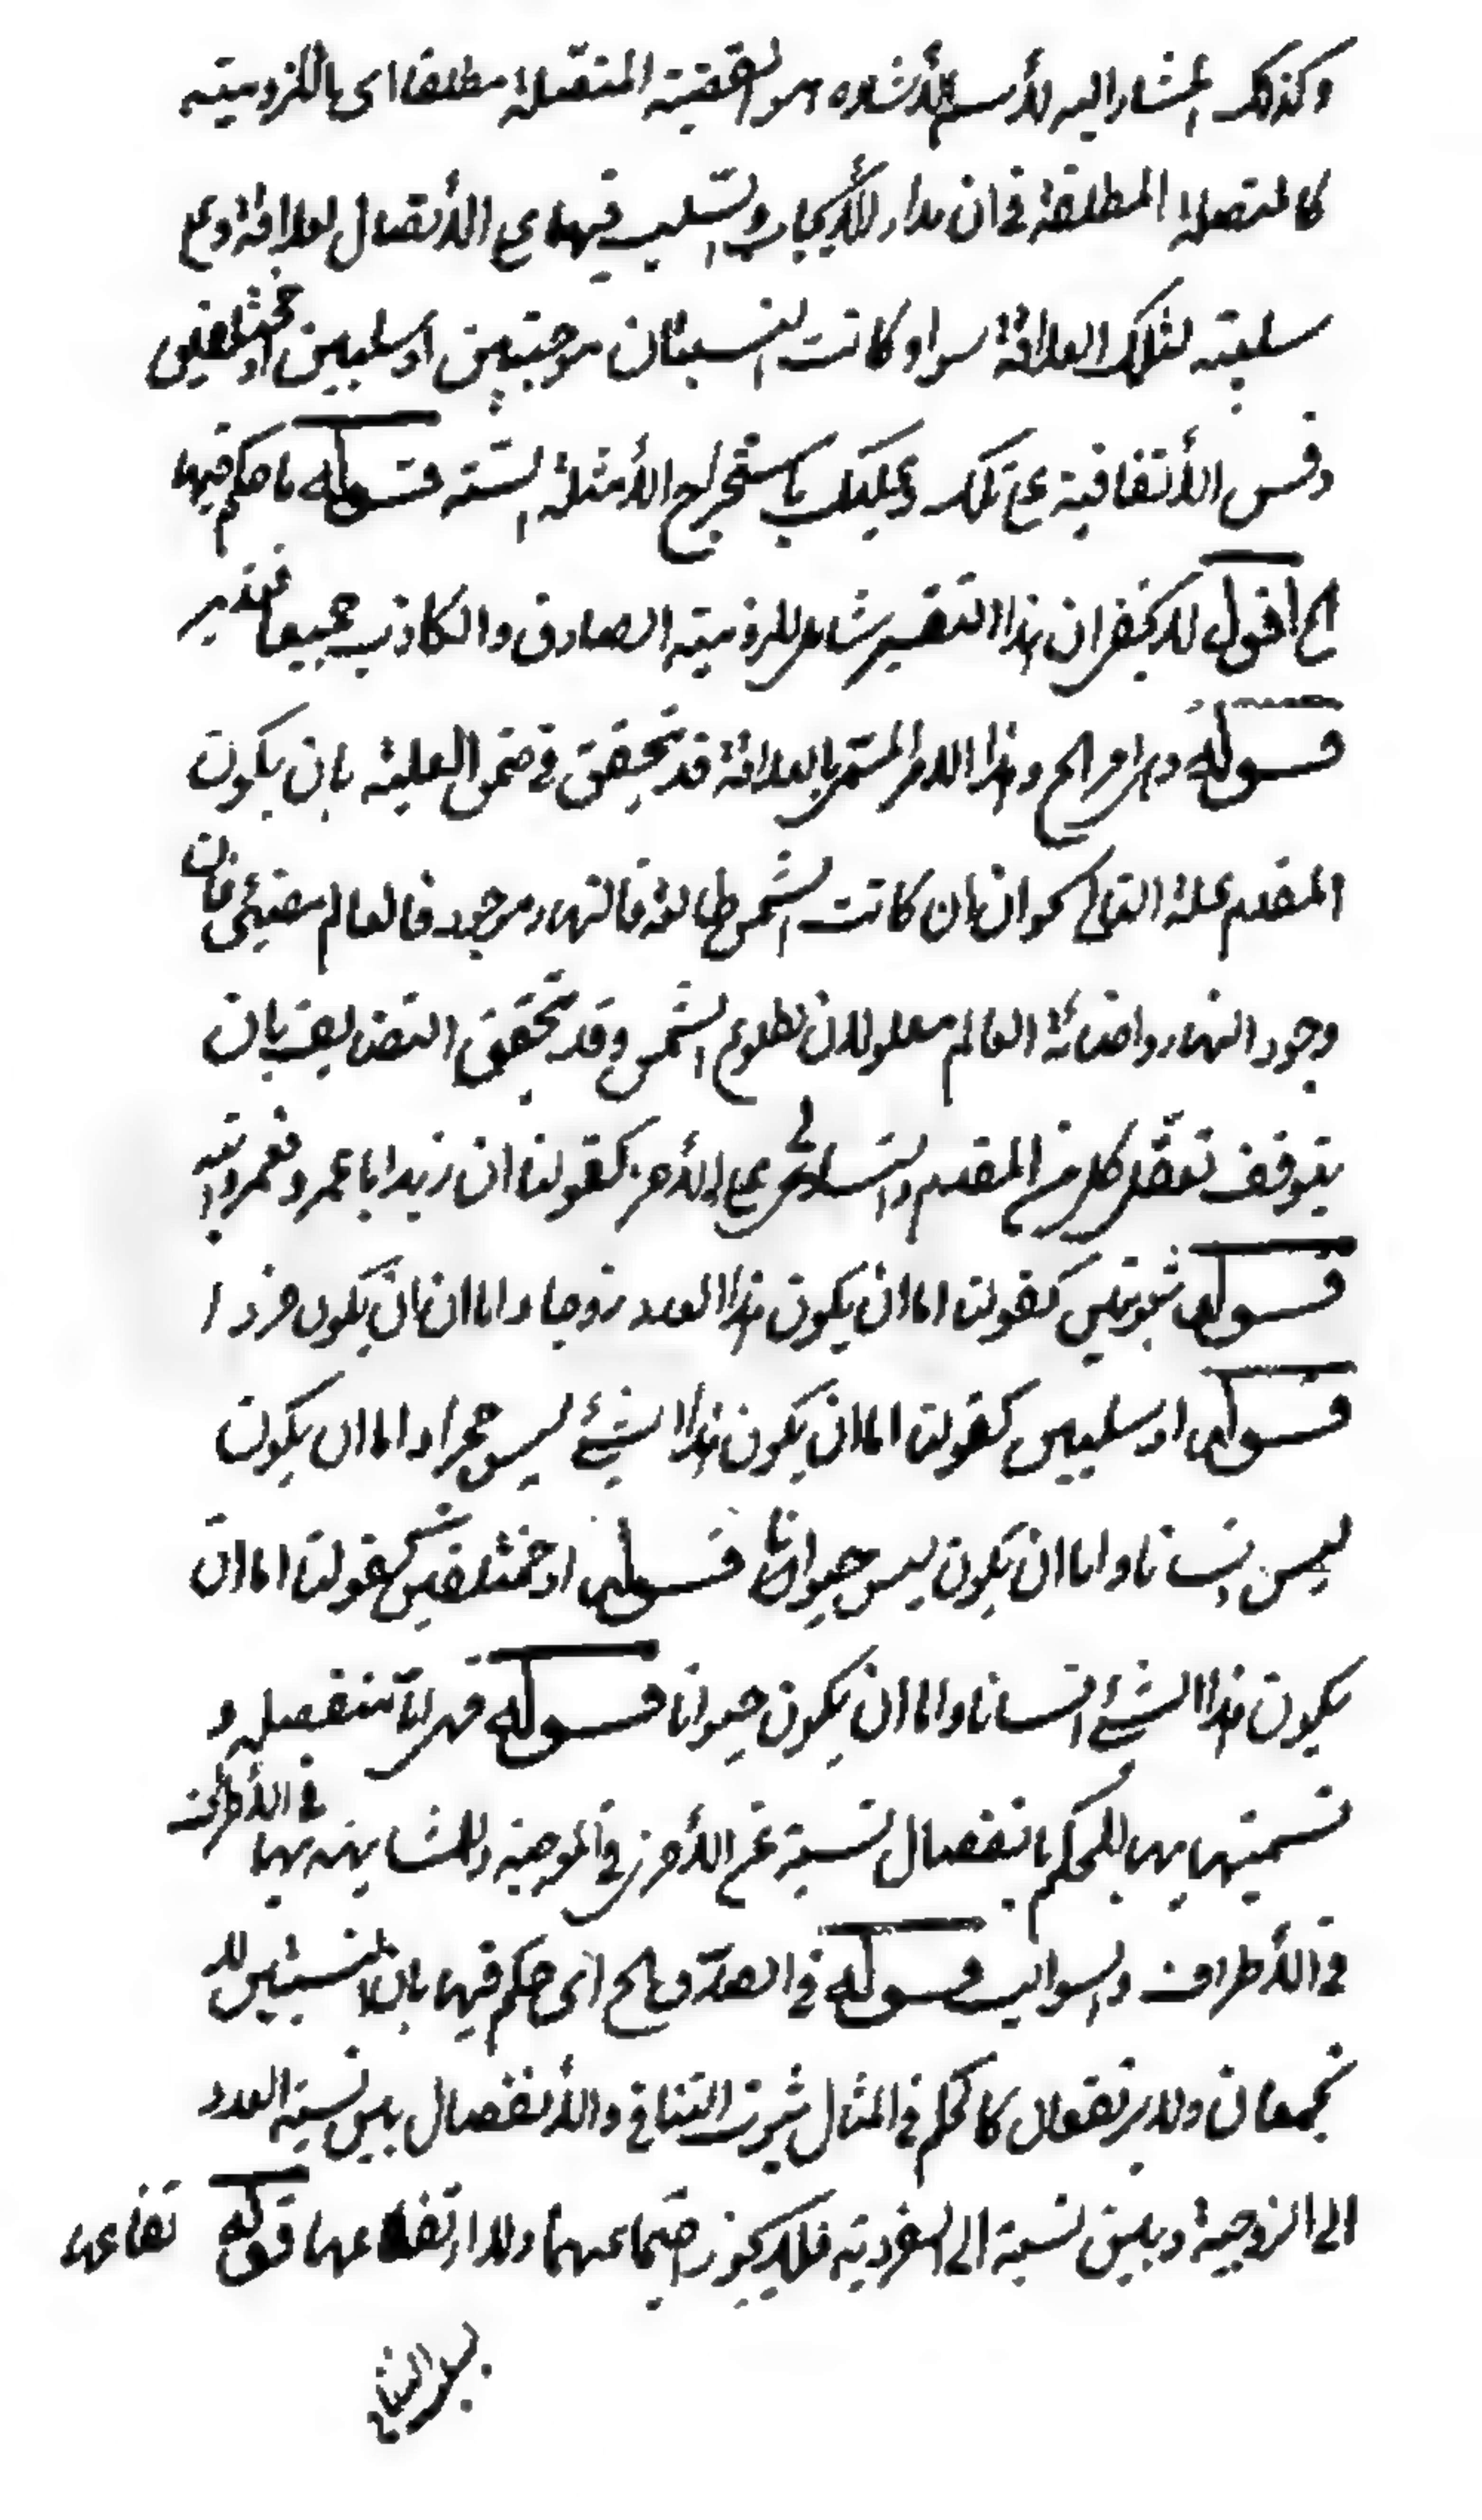 وكذلك المشار اليه لأسم الأشاره هو القضية المتصلة مطلقا اى ان اللزومية
كالمتصلة المطلقة فى ان مدار الأيجاب والسلب فيها على الأتصال لعلاقة وعلى
سلبه لتلك العلاقة سواء كانت النسبتان موجبتين او سلبيين او مختلفين
وقس الأتفاقية على تلك وعليك باستخراج الأمثلة الستة قــوله ما حكم فيها
الخ اقول لا يخفى ان هذا التفسير شامل للزومية الصادق والكاذب جميعا فتدبر
قــوله وهى امر الخ وهذا الامر المسمى بالعلاقة قد تحقق فى ضمن العلية بان يكون
المقدم علة التالى نحو ان كانت الشمس طالعة فالنهار موجود فالعالم مضيئ فان
وجود النهار واضائة العالم معلولان لطلوع الشمس وقد تحقق التضايف بان
يتوقف تعقل كل من المقدم والتالى على الأخر كقولنا ان زيد ابا عمرو فعمرو ابنه
قــوله ثبوتيين كقولنا اما ان يكون هذا العدد زوجا واما ان يكون فردا
قــوله او سلبيين كقولنا اما ان يكون هذا الشيئ ليس حجرا واما ان يكون
ليس انسانا واما ان يكون ليس حيوانا قــوله او مختلفين كقولنا اما ان
يكون هذا الشيئ انسانا واما ان يكون حيوانا قــوله فهى منفصله و
تسميتها بها للحكم بانفصال نسبة عن الأخرى فى الموجبة وللمشابهة بها فى الأطراف
فى الأطراف والسوالب قــوله فى الصدق الخ اى حكم فيها بان النسبتين لا
تجمعان ولا يرتفعان كالحكم فى المثال ثبوت التنافى والأنفصال بين نسبة العدد
الى الزوجية وبين نسبة الى الفردية فلا يجوز اجتماعهما ولا ارتفاعهما قوله تفاعها